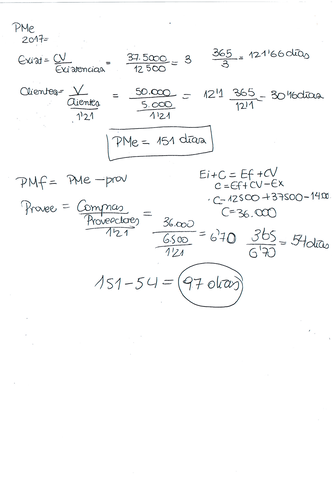 PMe
2017=
Exist = CV / Existencias = 37.5000 / 12500 = 3   365 / 3 = 121'66 días
Clientes = V / (Clientes / 1'21) = 50.000 / (5.000 / 1'21) = 12'1   365 / 12'1 = 30'16 días
PMe = 151 días
PMf = PMe - prov
Ei + C = Ef + CV
C = Ef + CV - Ex
C = 12500 + 37500 - 1400
C = 36.000
Provee = Compras / (Proveedores / 1'21) = 36.000 / (6500 / 1'21) = 6'70   365 / 6'70 = 54 días
151 - 54 = 97 días